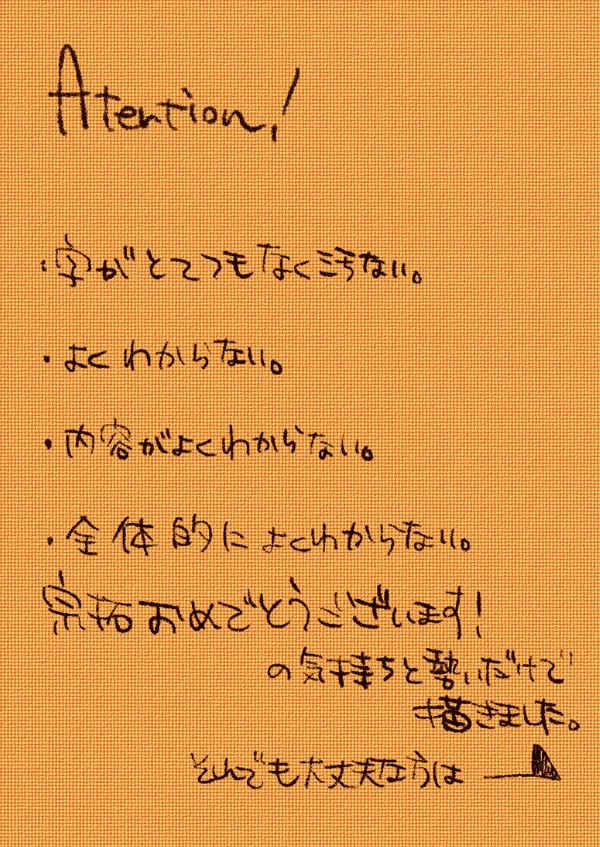 Atention!
・字がとてつもなく汚ない。
・よくわからない。
・内容がよくわからない。
・全体的によくわからない。
宗拓おめでとうございます!
の気持ちと勢いだけで
描きました。
それでも大丈夫な方は